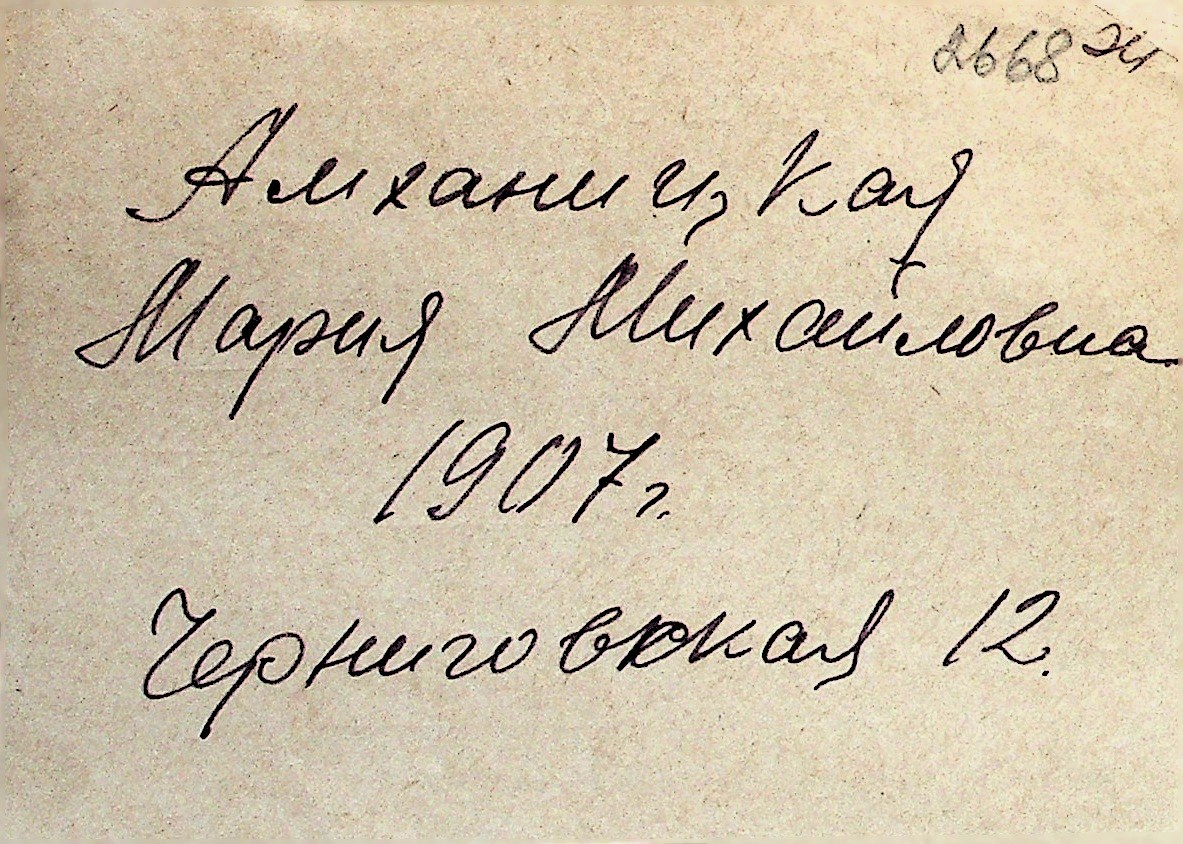 2668
Амханицкая
Мария Михайловна
1907г.
Черниговская 12.